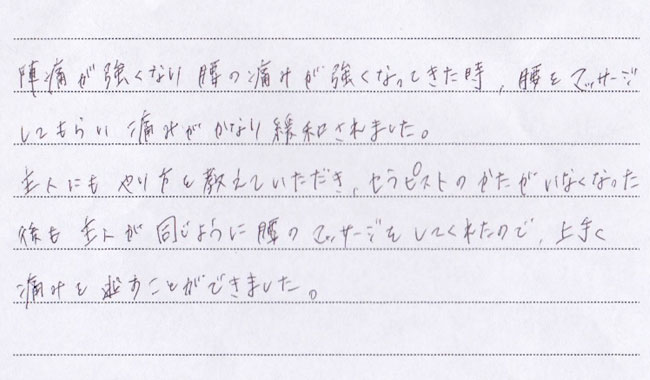 陣痛が強くなり腰の痛みが強くなってきた時、腰をマッサージ
してもらい痛みがかなり緩和されました。
主人にもやり方を教えていただき、セラピストのかたがいなくなった
後も主人が同じように腰のマッサージをしてくれたので、上手く
痛みを逃すことができました。